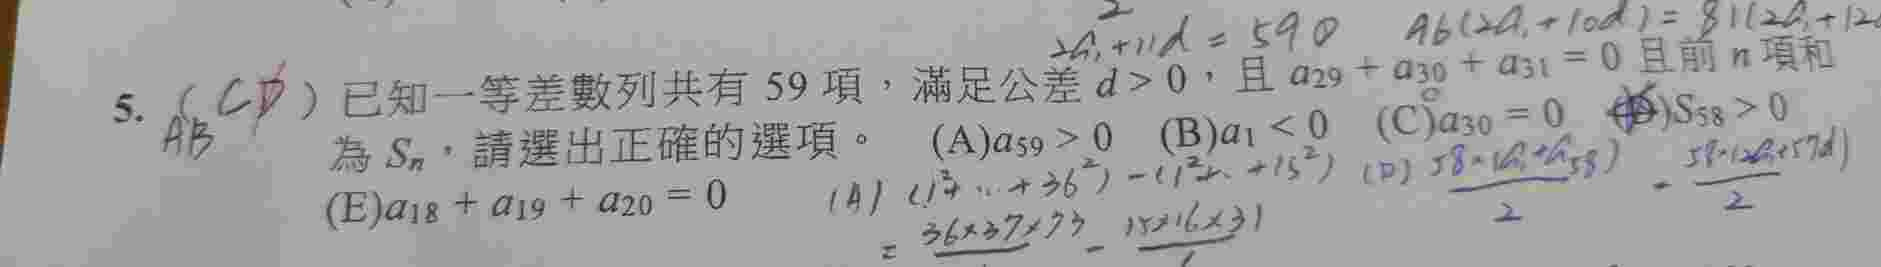 2a₁+11d = 590 96(2a₁+10d) = 81(2a₁+12
5. ( CD ) 已知一等差數列共有 59 項，滿足公差 d > 0，且 a₂₉ + a₃₀ + a₃₁ = 0 且前 n 項和
AB 為 Sₙ，請選出正確的選項。 (A)a₅₉ > 0 (B)a₁ < 0 (C)a₃₀ = 0 (D)S₅₈ > 0
(E)a₁₈ + a₁₉ + a₂₀ = 0 (A) (1²+ ... +36²) - (1²+ .. +15²) (D) 58×(a₁+a₅₈)/2 = 58×(2a₁+57d)/2
= 36×37×73 - 15×16×31